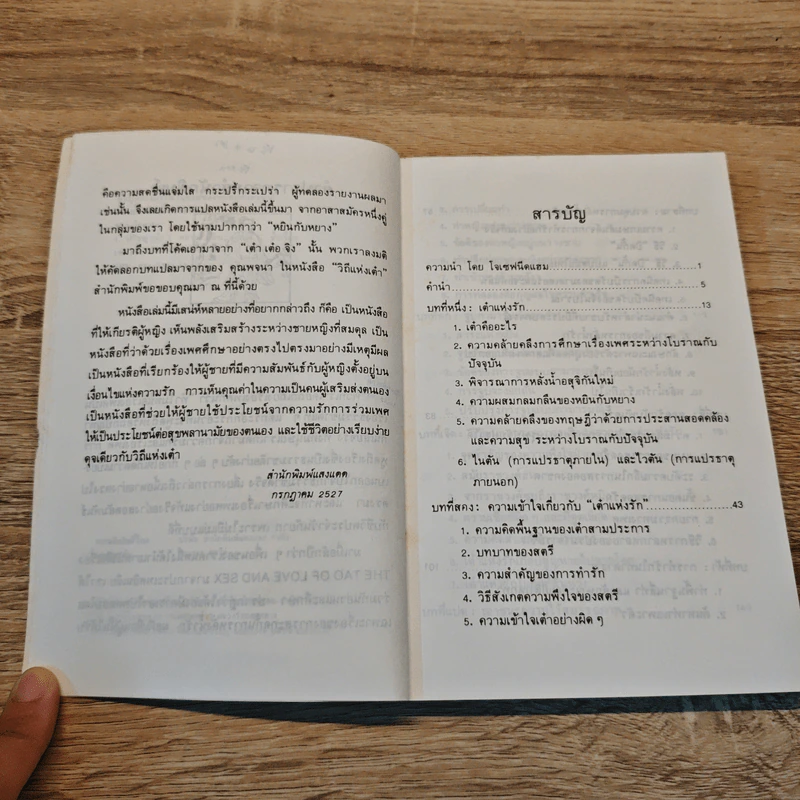 คือความสดชื่นแจ่มใส กระปรี้กระเปร่า ผู้ทดลองรายงานผลมา
เช่นนั้น จึงเลยเกิดการแปลหนังสือเล่มนี้ขึ้นมา จากอาสาสมัครหนึ่งคู่
ในกลุ่มของเรา โดยใช้นามปากกาว่า "หยินกับหยาง"
มาถึงบทที่โค้ดเอามาจาก "เต๋า เต๋อ จิง" นั้น พวกเราลงมติ
ให้คัดลอกบทแปลมาจากของ คุณพจนา ในหนังสือ "วิถีแห่งเต๋า"
สำนักพิมพ์ขอขอบคุณมา ณ ที่นี้ด้วย
หนังสือเล่มนี้มีเสน่ห์หลายอย่างที่อยากกล่าวถึง ก็คือ เป็นหนังสือ
ที่ให้เกียรติผู้หญิง เห็นพลังเสริมสร้างระหว่างชายหญิงที่สมดุล เป็น
หนังสือที่ว่าด้วยเรื่องเพศศึกษาอย่างตรงไปตรงมาอย่างมีเหตุมีผล
เป็นหนังสือที่เรียกร้องให้ผู้ชายที่มีความสัมพันธ์กับผู้หญิงตั้งอยู่บน
เงื่อนไขแห่งความรัก การเห็นคุณค่าในความเป็นคนผู้เสริมส่งตนเอง
เป็นหนังสือที่ช่วยให้ผู้ชายใช้ประโยชน์จากความรักการร่วมเพศ
ให้เป็นประโยชน์ต่อสุขพลานามัยของตนเอง และใช้ชีวิตอย่างเรียบง่าย
ดุจเดียวกับวิถีแห่งเต๋า
สำนักพิมพ์แสงแดด
กรกฎาคม 2527
สารบัญ
ความนำ โดย โจเซฟนีดแฮม.....1
คำนำ.....5
บทที่หนึ่ง : เต๋าแห่งรัก.....13
1. เต๋าคืออะไร
2. ความคล้ายคลึงการศึกษาเรื่องเพศระหว่างโบราณกับ
ปัจจุบัน
3. พิจารณาการหลั่งน้ำอสุจิกันใหม่
4. ความผสมกลมกลืนของหยินกับหยาง
5. ความคล้ายคลึงของทฤษฎีว่าด้วยการประสานสอดคล้อง
และความสุข ระหว่างโบราณกับปัจจุบัน
6. ไนตัน (การแปรธาตุภายใน) และไวตัน (การแปรธาตุ
ภายนอก)
บทที่สอง : ความเข้าใจเกี่ยวกับ "เต๋าแห่งรัก".....43
1. ความคิดพื้นฐานของเต๋าสามประการ
2. บทบาทของสตรี
3. ความสำคัญของการทำรัก
4. วิธีสังเกตความพึงใจของสตรี
5. ความเข้าใจเต๋าอย่างผิด ๆ